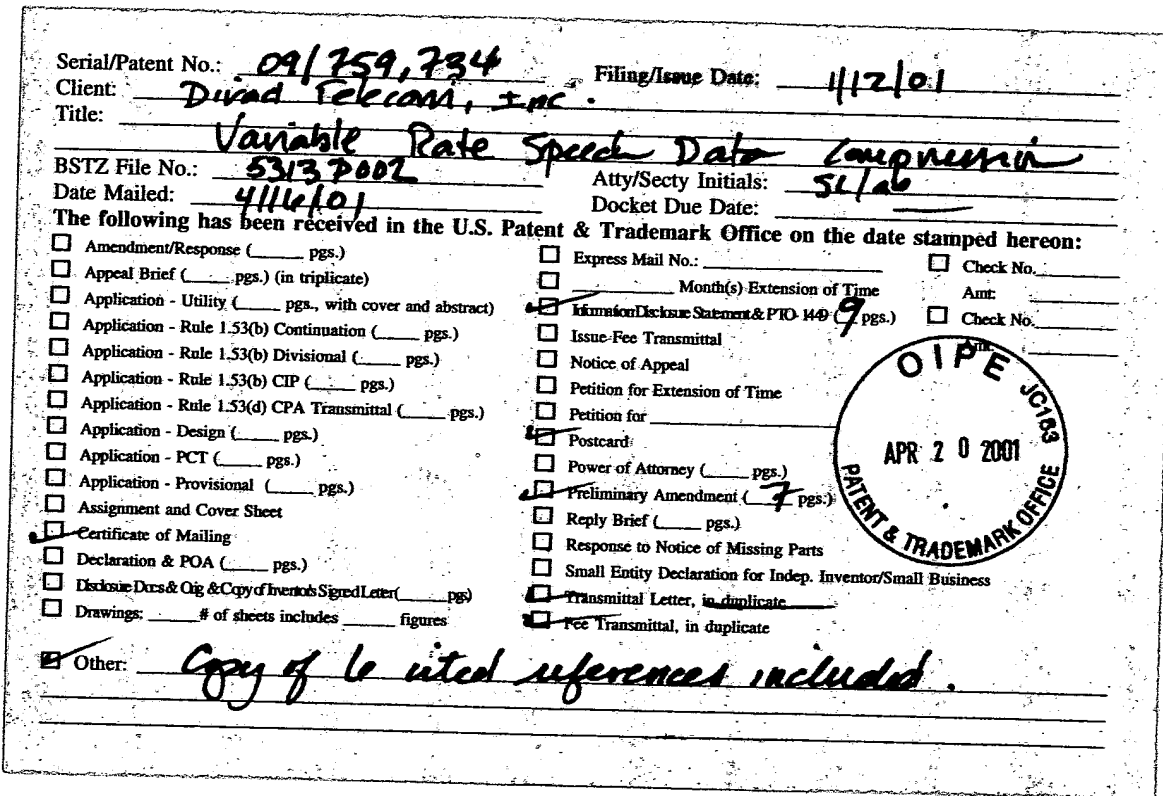 Serial/Patent No.: 09/759,734 Filing/Issue Date: 1/12/01
Client: Divad Telecom, Inc.
Title: Variable Rate Speech Data Compression
BSTZ File No.: 5313P002 Atty/Secty Initials: SL/ab
Date Mailed: 4/16/01 Docket Due Date:
The following has been received in the U.S. Patent & Trademark Office on the date stamped hereon:
Amendment/Response (____ pgs.)
Appeal Brief (____ pgs.) (in triplicate)
Application - Utility (____ pgs., with cover and abstract)
Application - Rule 1.53(b) Continuation (____ pgs.)
Application - Rule 1.53(b) Divisional (____ pgs.)
Application - Rule 1.53(b) CIP (____ pgs.)
Application - Rule 1.53(d) CPA Transmittal (____ pgs.)
Application - Design (____ pgs.)
Application - PCT (____ pgs.)
Application - Provisional (____ pgs.)
Assignment and Cover Sheet
Certificate of Mailing
Declaration & POA (____ pgs.)
Disclosure Docs & Orig & Copy of Inventor's Signed Letter (____ pgs)
Drawings: ____ # of sheets includes ____ figures
Express Mail No.:
____ Month(s) Extension of Time
Information Disclosure Statement & PTO-1449 (9 pgs.)
Issue Fee Transmittal
Notice of Appeal
Petition for Extension of Time
Petition for
Postcard
Power of Attorney (____ pgs.)
Preliminary Amendment (7 pgs.)
Reply Brief (____ pgs.)
Response to Notice of Missing Parts
Small Entity Declaration for Indep. Inventor/Small Business
Transmittal Letter, in duplicate
Fee Transmittal, in duplicate
Check No.
Amt:
Check No.
Amt:
OIPE JC163
APR 20 2001
PATENT & TRADEMARK OFFICE
Other: Copy of 6 cited references included.